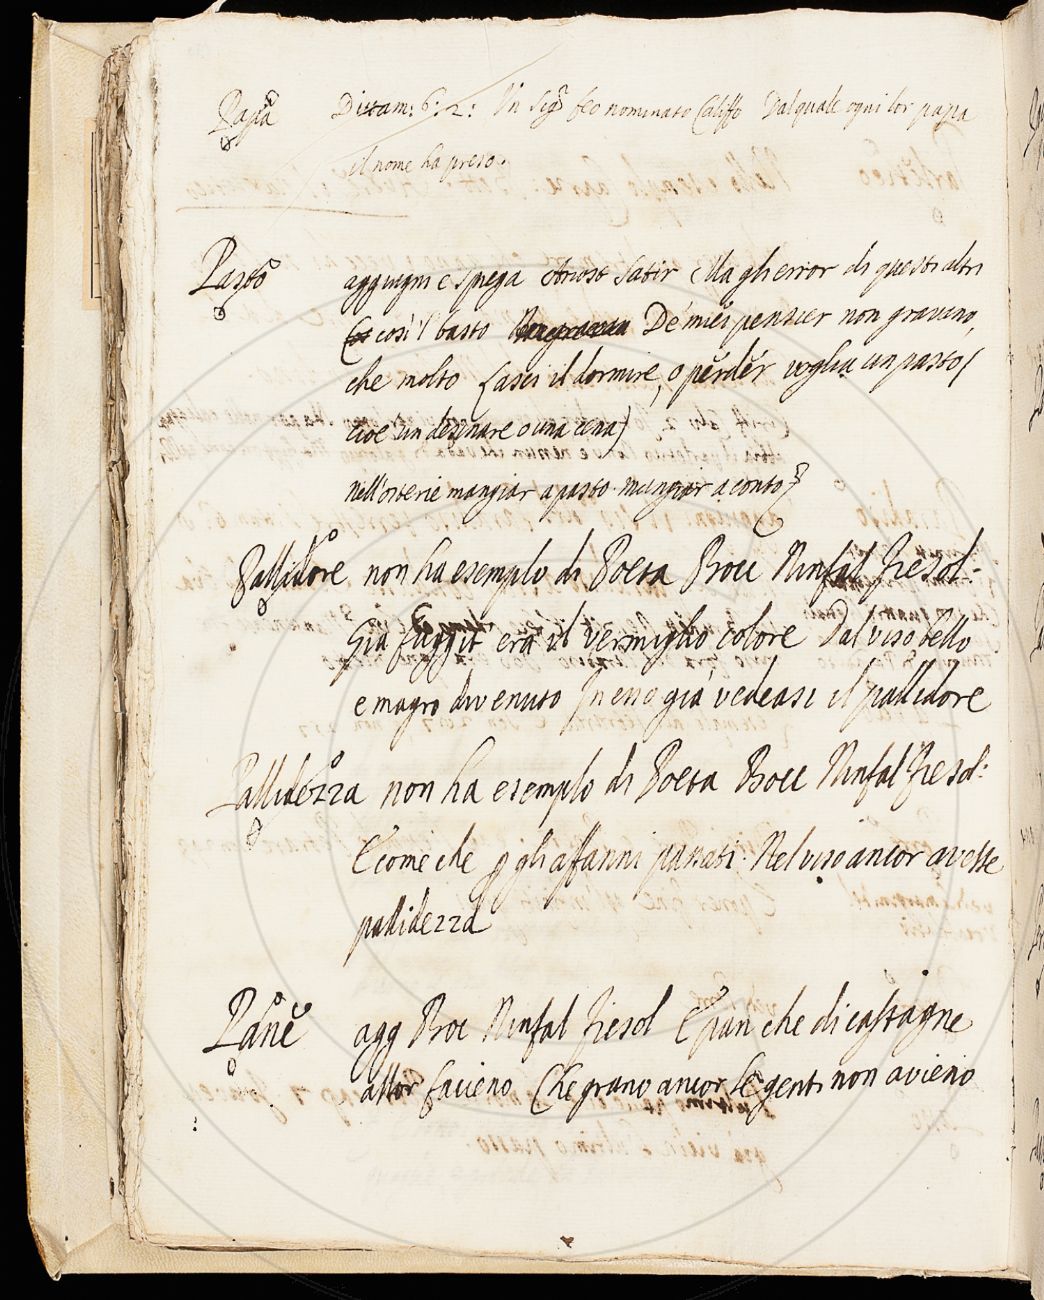 Papa Dittam: 6: 2: Un Sig.r feo nominato Califfo Dal quale ogni lor papa
il nome ha preso.
Pasto aggiugni e spega Ariost Satir Ma gli error di questi altri
così 'l basto De miei pensier non gravino,
che molto Lasci il dormire, o perder voglia un pasto (
cioè un desinare o una cena)
nell'osterie mangiar a pasto. mangiar a conto
Pallidore non ha esemplo di Poeta Bocc Ninfal Fiesol:
Già fuggit era il vermiglio colore Dal viso bello
e magro divenuto In esso già vedeasi il pallidore
Pallidezza non ha esemplo di Poeta Bocc Ninfal Fiesol:
E come che p gli affanni passati. Nel viso ancor avesse
pallidezza
Pane agg Boc Ninfal Fiesol E pan che di castagne
allor facieno Che grano ancor le genti non avieno